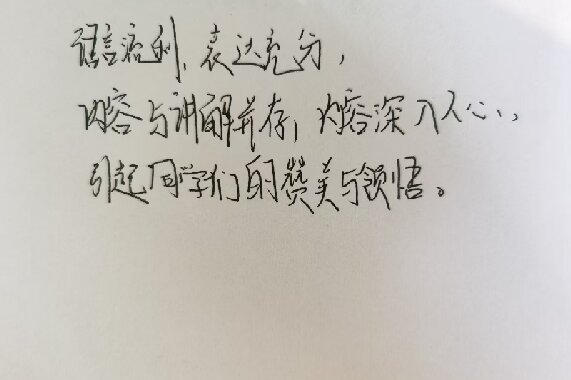 语言流利，表达充分，
内容与讲解并存，内容深入人心，
引起同学们的赞美与领悟。